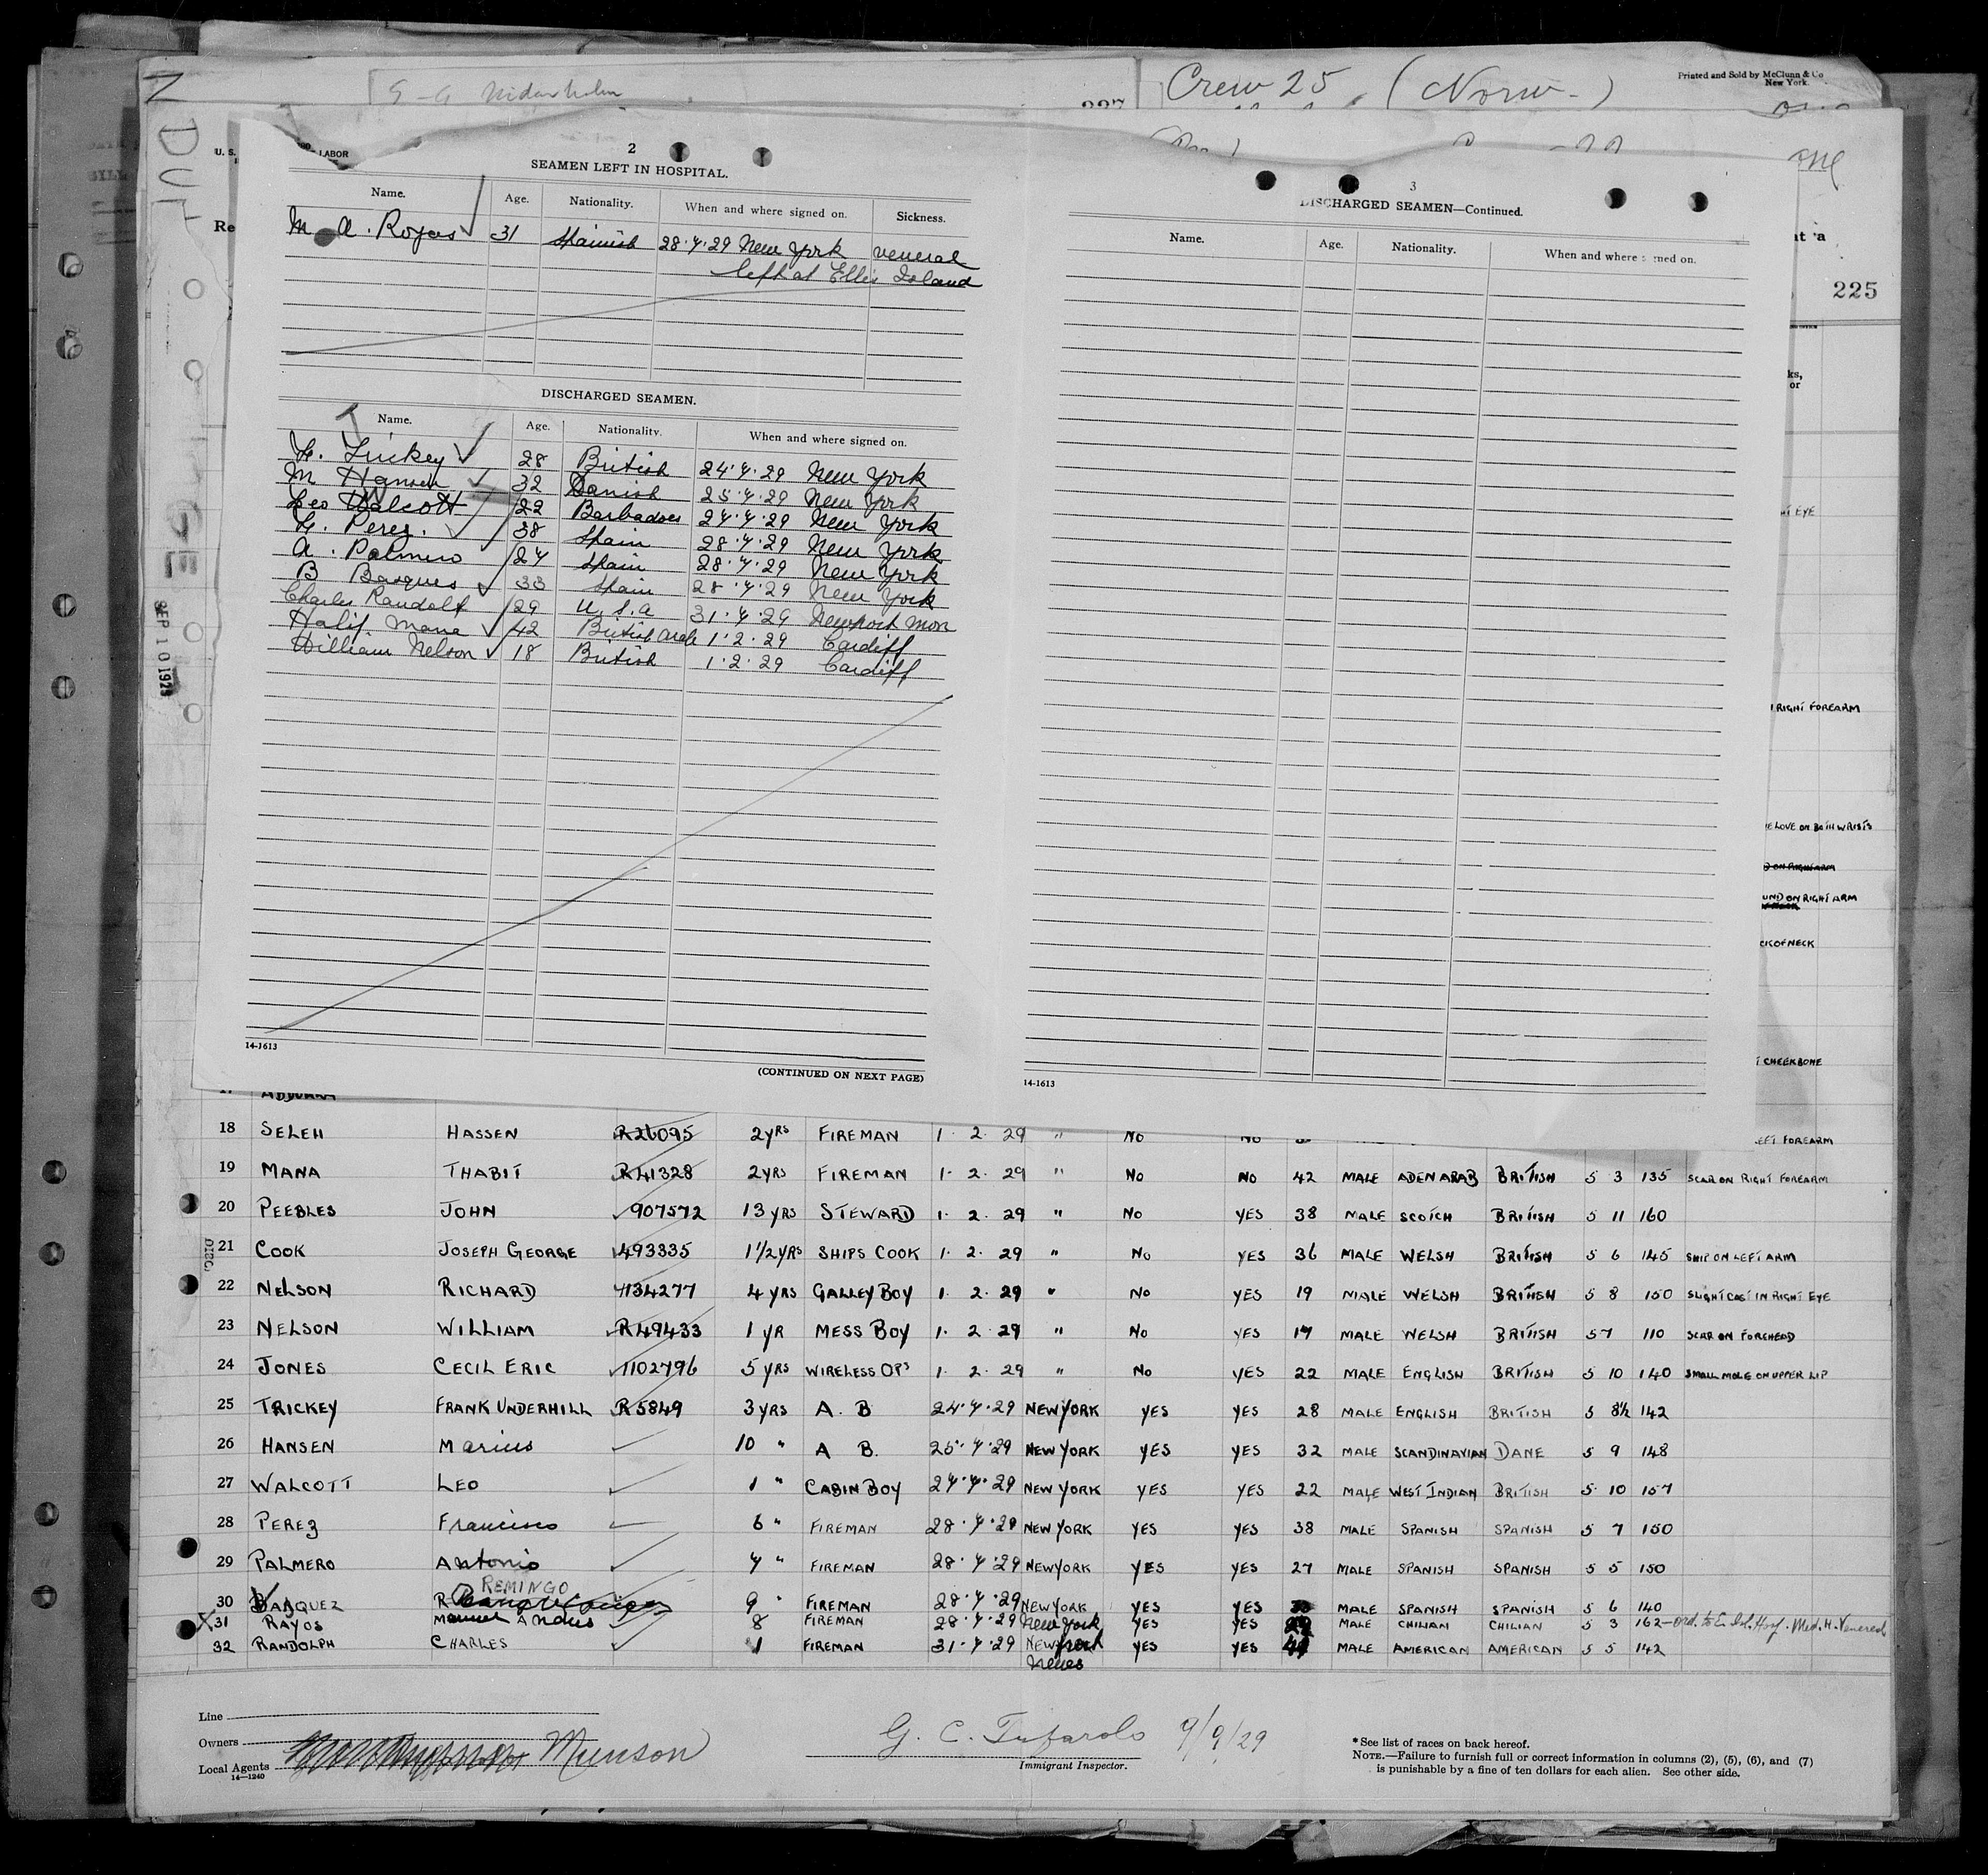 Crew 25 (Norw.)
Printed and Sold by McClunn & Co
New York.
U. S.
LABOR
Re
225
2
SEAMEN LEFT IN HOSPITAL.
Name. Age. Nationality. When and where signed on. Sickness.
M. A. Rojas 31 Spanish 28.7.29 New York veneral
left at Ellis Island
DISCHARGED SEAMEN.
Name. Age. Nationality. When and where signed on.
F. Trickey 28 British 24.7.29 New York
M Hansen 32 Danish 25.7.29 New York
Leo Walcott 22 Barbadoes 27.7.29 New York
F. Perez. 38 Spain 28.7.29 New York
A. Palmero 27 Spain 28.7.29 New York
B Basques 33 Spain 28.7.29 New York
Charles Randolf 29 U.S.A 31.7.29 Newport
Halif Mana 42 British Arab 1.2.29 Cardiff
William Nelson 18 British 1.2.29 Cardiff
14-1613
(CONTINUED ON NEXT PAGE)
3
DISCHARGED SEAMEN—Continued.
Name. Age. Nationality. When and where signed on.
14-1613
SEP 10 1929
EYE
RIGHT FOREARM
LOVE ON BOTH WRISTS
ON RIGHT ARM
CK OF NECK
CHEEKBONE
18 SELEH HASSEN R26095 2YRS FIREMAN 1. 2. 29 " NO NO EFT FOREARM
19 MANA THABIT R41328 2YRS FIREMAN 1. 2. 29 " NO NO 42 MALE ADEN ARAB BRITISH 5 3 135 SCAR ON RIGHT FOREARM
20 PEEBLES JOHN 907572 13 YRS STEWARD 1. 2. 29 " NO YES 38 MALE SCOTCH BRITISH 5 11 160
21 COOK JOSEPH GEORGE 493335 1 1/2 YRS SHIPS COOK 1. 2. 29 " NO YES 36 MALE WELSH BRITISH 5 6 145 SHIP ON LEFT ARM
22 NELSON RICHARD 1134277 4 YRS GALLEY BOY 1. 2. 29 " NO YES 19 MALE WELSH BRITISH 5 8 150 SLIGHT CAST IN RIGHT EYE
23 NELSON WILLIAM R49433 1 YR MESS BOY 1. 2. 29 " NO YES 17 MALE WELSH BRITISH 5 7 110 SCAR ON FOREHEAD
24 JONES CECIL ERIC 1102796 5 YRS WIRELESS OPS 1. 2. 29 " NO YES 22 MALE ENGLISH BRITISH 5 10 140 SMALL MOLE ON UPPER LIP
25 TRICKEY FRANK UNDERHILL R5849 3 YRS A. B 24.7.29 NEW YORK YES YES 28 MALE ENGLISH BRITISH 5 8½ 142
26 HANSEN Marius 10 " A B. 25.7.29 NEW YORK YES YES 32 MALE SCANDINAVIAN DANE 5 9 148
27 WALCOTT LEO 1 " CABIN BOY 27.7.29 NEW YORK YES YES 22 MALE WEST INDIAN BRITISH 5 10 157
28 PEREZ Francisco 6 " FIREMAN 28.7.29 NEW YORK YES YES 38 MALE SPANISH SPANISH 5 7 150
29 PALMERO Antonio 7 " FIREMAN 28.7.29 NEW YORK YES YES 27 MALE SPANISH SPANISH 5 5 150
REMINGO
30 VASQUEZ 9 " FIREMAN 28.7.29 NEW YORK YES YES MALE SPANISH SPANISH 5 6 140
31 RAYOS Manuel 8 FIREMAN 28.7.29 New York YES YES MALE CHILIAN CHILIAN 5 3 162—Ord. to E. Isl. Hosp. Med. H. Venereal
32 RANDOLPH CHARLES 1 FIREMAN 31.7.29 NEWPORT YES YES MALE AMERICAN AMERICAN 5 5 142
News
Line
Owners
Local Agents Munson
14—1240
G. C. Tufarolo 9/9/29
Immigrant Inspector.
* See list of races on back hereof.
NOTE.—Failure to furnish full or correct information in columns (2), (5), (6), and (7)
is punishable by a fine of ten dollars for each alien. See other side.